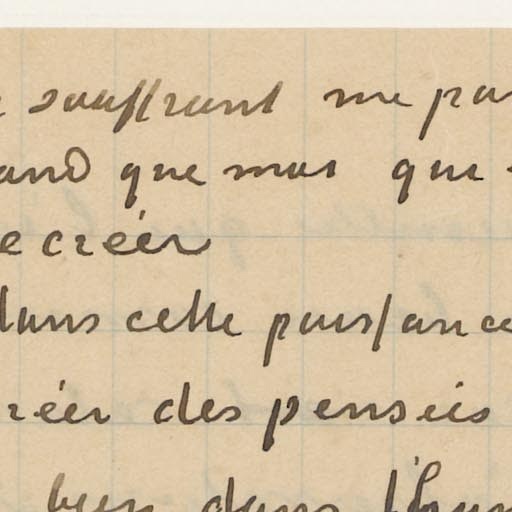 souffrant me pas
and que moi qui
e créer
dans cette puissance
réer des pensées
bien dans l'hum